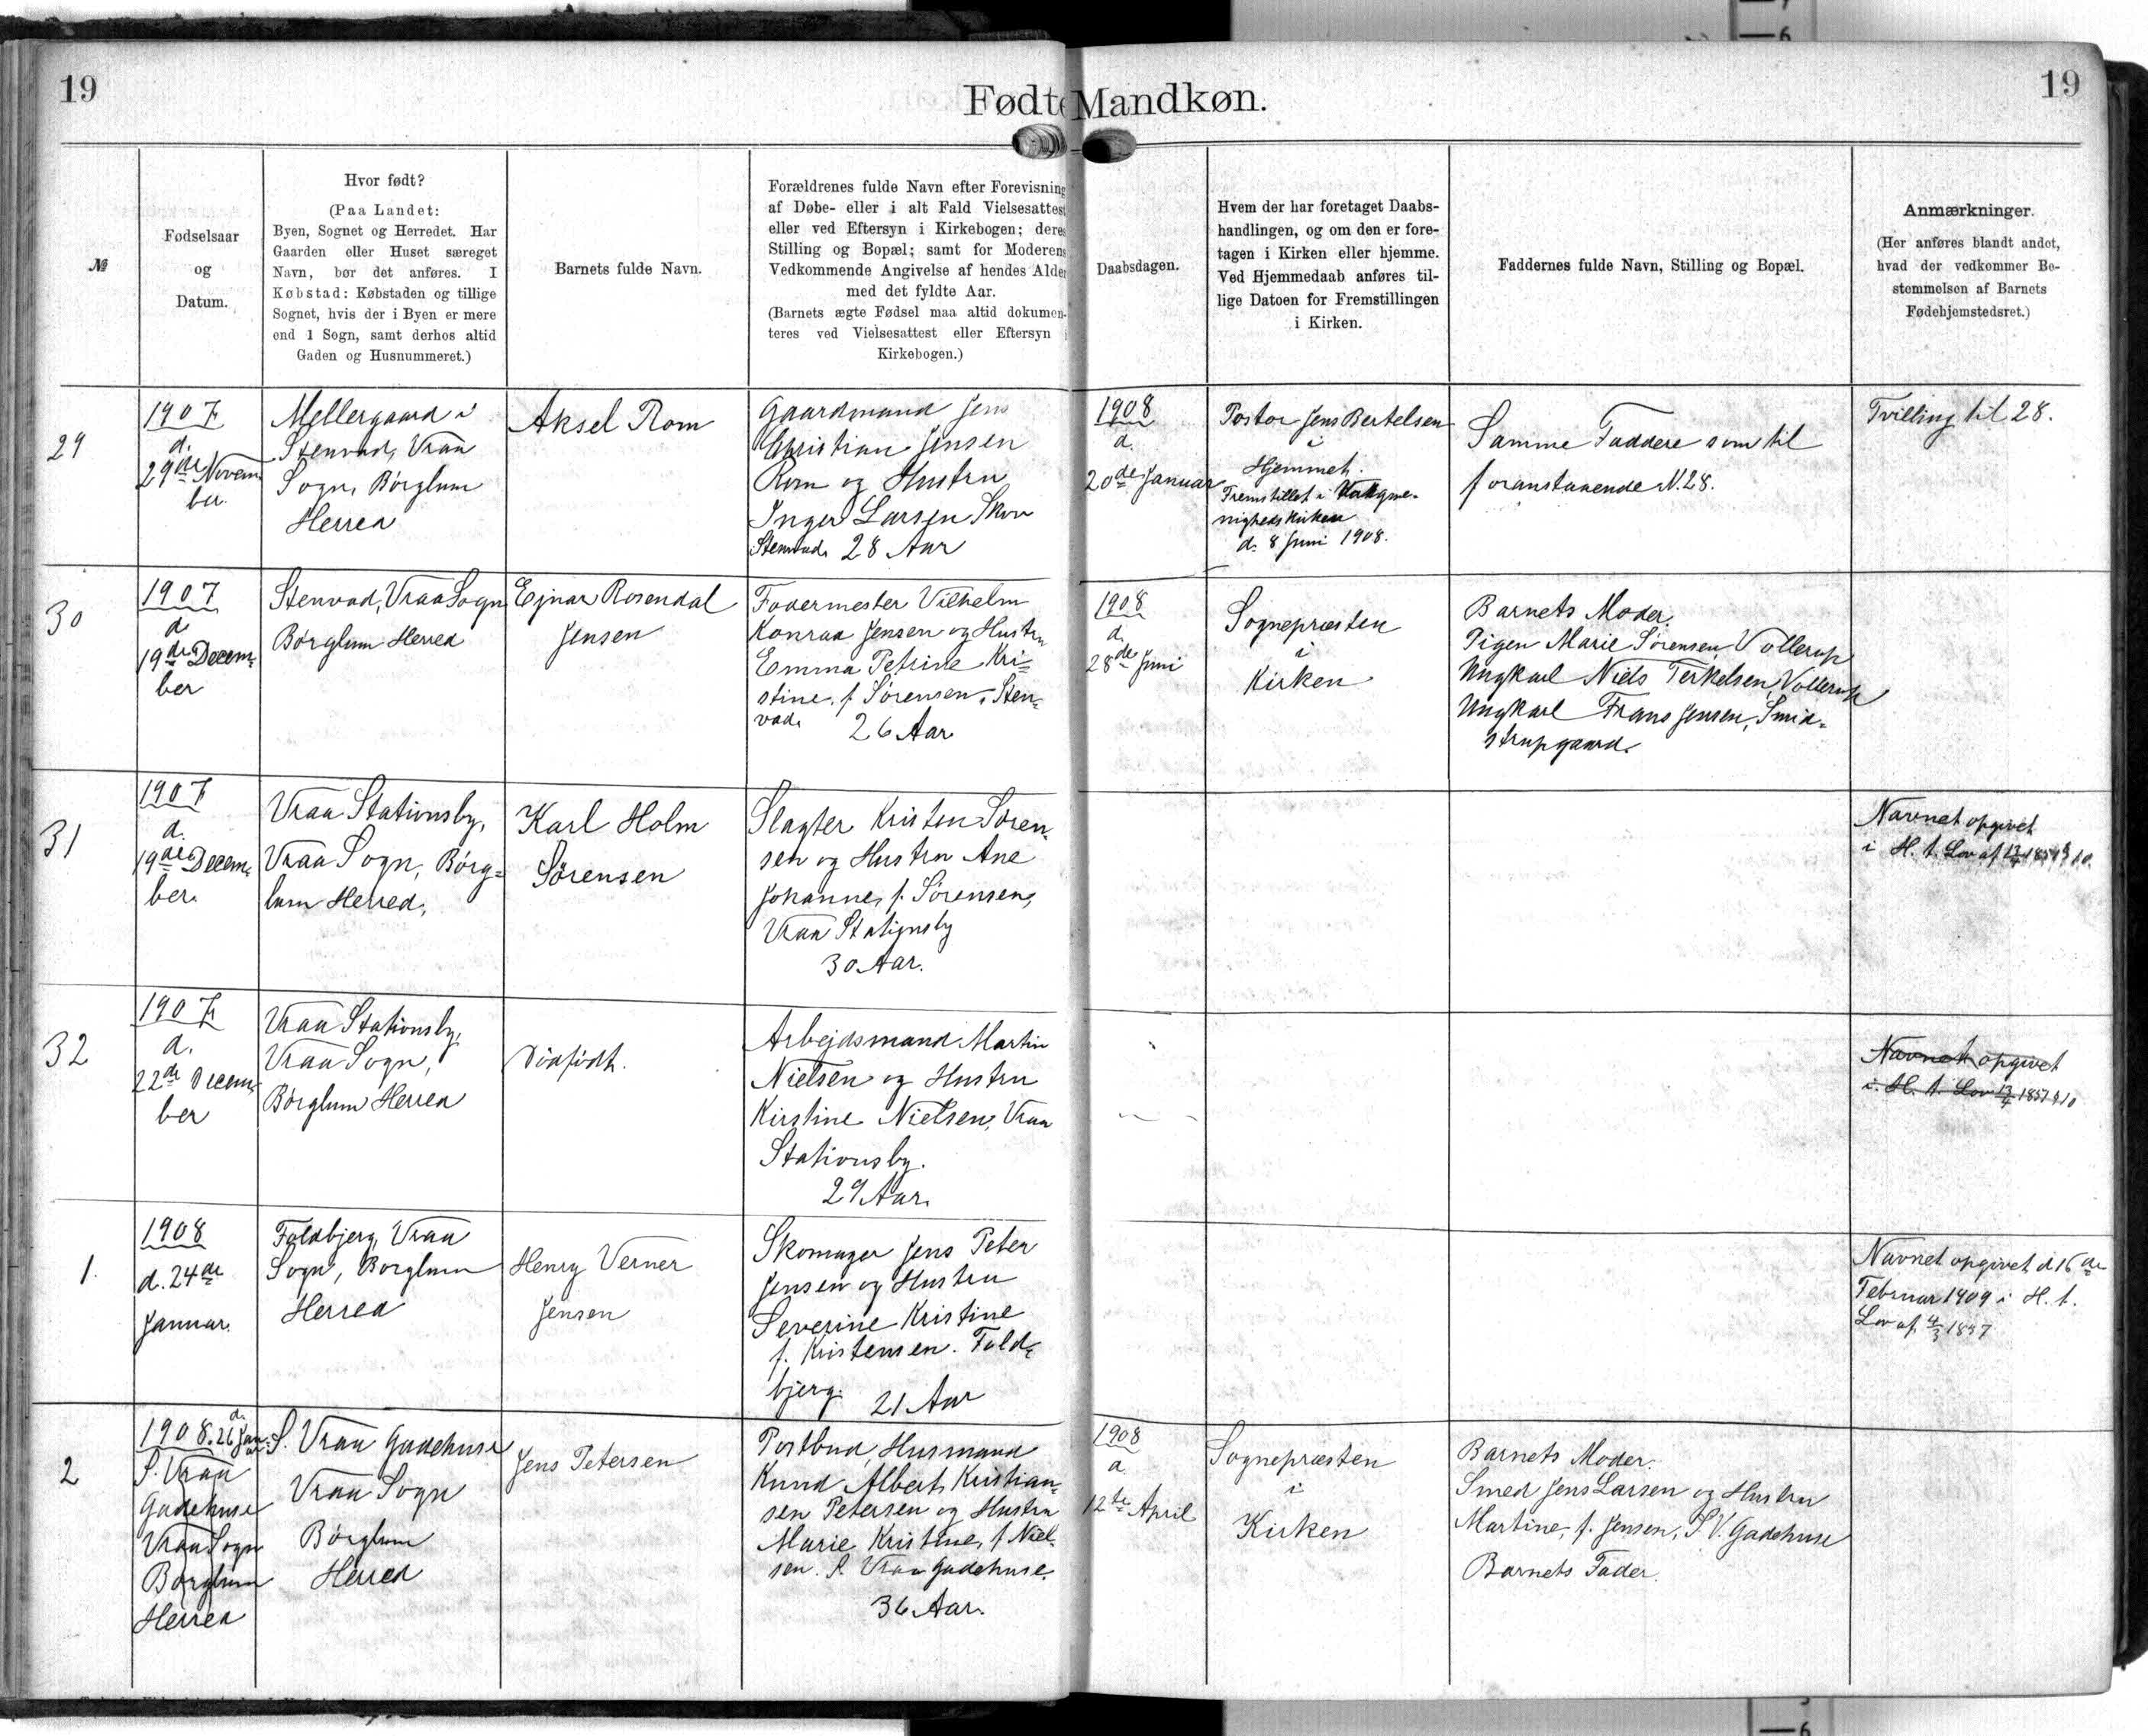 19
Fødte Mandkøn.
19
№
Fødselsaar
og
Datum.
Hvor født?
(Paa Landet:
Byen, Sognet og Herredet. Har
Gaarden eller Huset særeget
Navn, bør det anføres. I
Købstad: Købstaden og tillige
Sognet, hvis der i Byen er mere
end 1 Sogn, samt derhos altid
Gaden og Husnummeret.)
Barnets fulde Navn.
Forældrenes fulde Navn efter Forevisning
af Døbe- eller i alt Fald Vielsesattest
eller ved Eftersyn i Kirkebogen; deres
Stilling og Bopæl; samt for Moderens
Vedkommende Angivelse af hendes Alder
med det fyldte Aar.
(Barnets ægte Fødsel maa altid dokumen-
teres ved Vielsesattest eller Eftersyn i
Kirkebogen.)
Daabsdagen.
Hvem der har foretaget Daabs-
handlingen, og om den er fore-
tagen i Kirken eller hjemme.
Ved Hjemmedaab anføres til-
lige Datoen for Fremstillingen
i Kirken.
Faddernes fulde Navn, Stilling og Bopæl.
Anmærkninger.
(Her anføres blandt andet,
hvad der vedkommer Be-
stemmelsen af Barnets
Fødehjemstedsret.)
29
1907
d.
29de Novem-
ber.
Mellergaard i
Stenvad, Vraa
Sogn, Børglum
Herred
Aksel Rom
Gaardmand Jens
Christian Jensen
Rom og Hustru
Inger Larsen Skov
Stenvad. 28 Aar
1908
d.
20de Januar
Pastor Jens Bertelsen
i
Hjemmet.
Fremstillet i Valgme-
nighedskirken
d. 8 Juni 1908.
Samme Faddere som til
foranstaaende N. 28.
Tvilling til 28.
30
1907
d
19de Decem-
ber
Stenvad, Vraa Sogn
Børglum Herred
Ejnar Rosendal
Jensen
Fodermester Vilhelm
Konrad Jensen og Hustru
Emma Petrine Kri-
stine f. Sørensen, Sten-
vad. 26 Aar
1908
d.
28de Juni
Sognepræsten
i
Kirken
Barnets Moder.
Pigen Marie Sørensen, Vollerup
Ungkarl Niels Terkelsen, Vollerup
Ungkarl Frans Jensen, Smid-
strupgaard.
31
1907
d.
19de Decem-
ber.
Vraa Stationsby,
Vraa Sogn, Børg-
lum Herred,
Karl Holm
Sørensen
Slagter Kristen Søren-
sen og Hustru Ane
Johanne, f. Sørensen,
Vraa Stationsby
30 Aar.
Navnet opgivet
i H. t. Lov af 13/4 1857 § 10.
32
1907
d.
22de Decem-
ber
Vraa Stationsby,
Vraa Sogn,
Børglum Herred
Dødfødt.
Arbejdsmand Martin
Nielsen og Hustru
Kirstine Nielsen, Vraa
Stationsby.
29 Aar.
Navnet opgivet
i H. t. Lov 13/4 1857 § 10
1.
1908
d. 24de
Januar.
Foldbjerg, Vraa
Sogn, Børglum
Herred
Henry Verner
Jensen
Skomager Jens Peter
Jensen og Hustru
Severine Kristine
f. Kristensen. Fold-
bjerg. 21 Aar
Navnet opgivet d 16de
Februar 1909 i H. t.
Lov af 4/3 1857
2
1908. d. 26 Jan.
S. Vraa
Gadehuse
Vraa Sogn
Børglum
Herred
S. Vraa Gadehuse
Vraa Sogn
Børglum
Herred
Jens Petersen
Postbud, Husmand
Knud Albert Kristian-
sen Petersen og Hustru
Marie Kristine, f. Niel-
sen. S. Vraa Gadehuse.
36 Aar.
1908
d
12te April
Sognepræsten
i
Kirken
Barnets Moder.
Smed Jens Larsen og Hustru
Martine, f. Jensen, S V. Gadehuse
Barnets Fader.